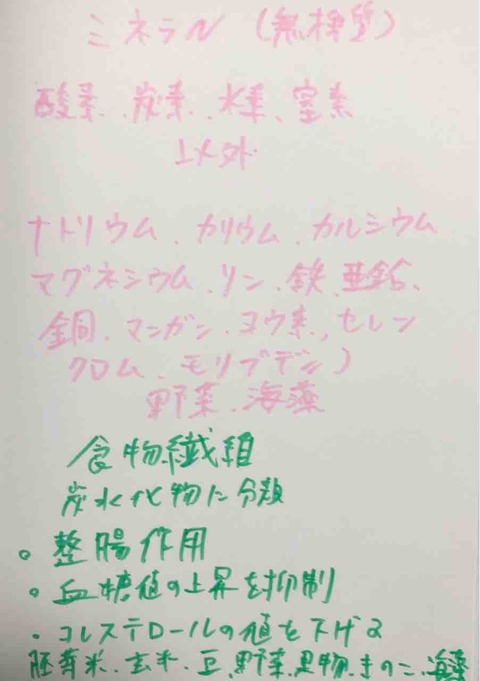 ミネラル(無機質)
酸素、炭素、水素、窒素
以外
ナトリウム、カリウム、カルシウム
マグネシウム、リン、鉄、亜鉛、
銅、マンガン、ヨウ素、セレン
クロム、モリブデン)
野菜、海藻
食物繊維
炭水化物に分類
・整腸作用
・血糖値の上昇を抑制
・コレステロールの値を下げる
胚芽米、玄米、豆、野菜、果物、きのこ、海藻